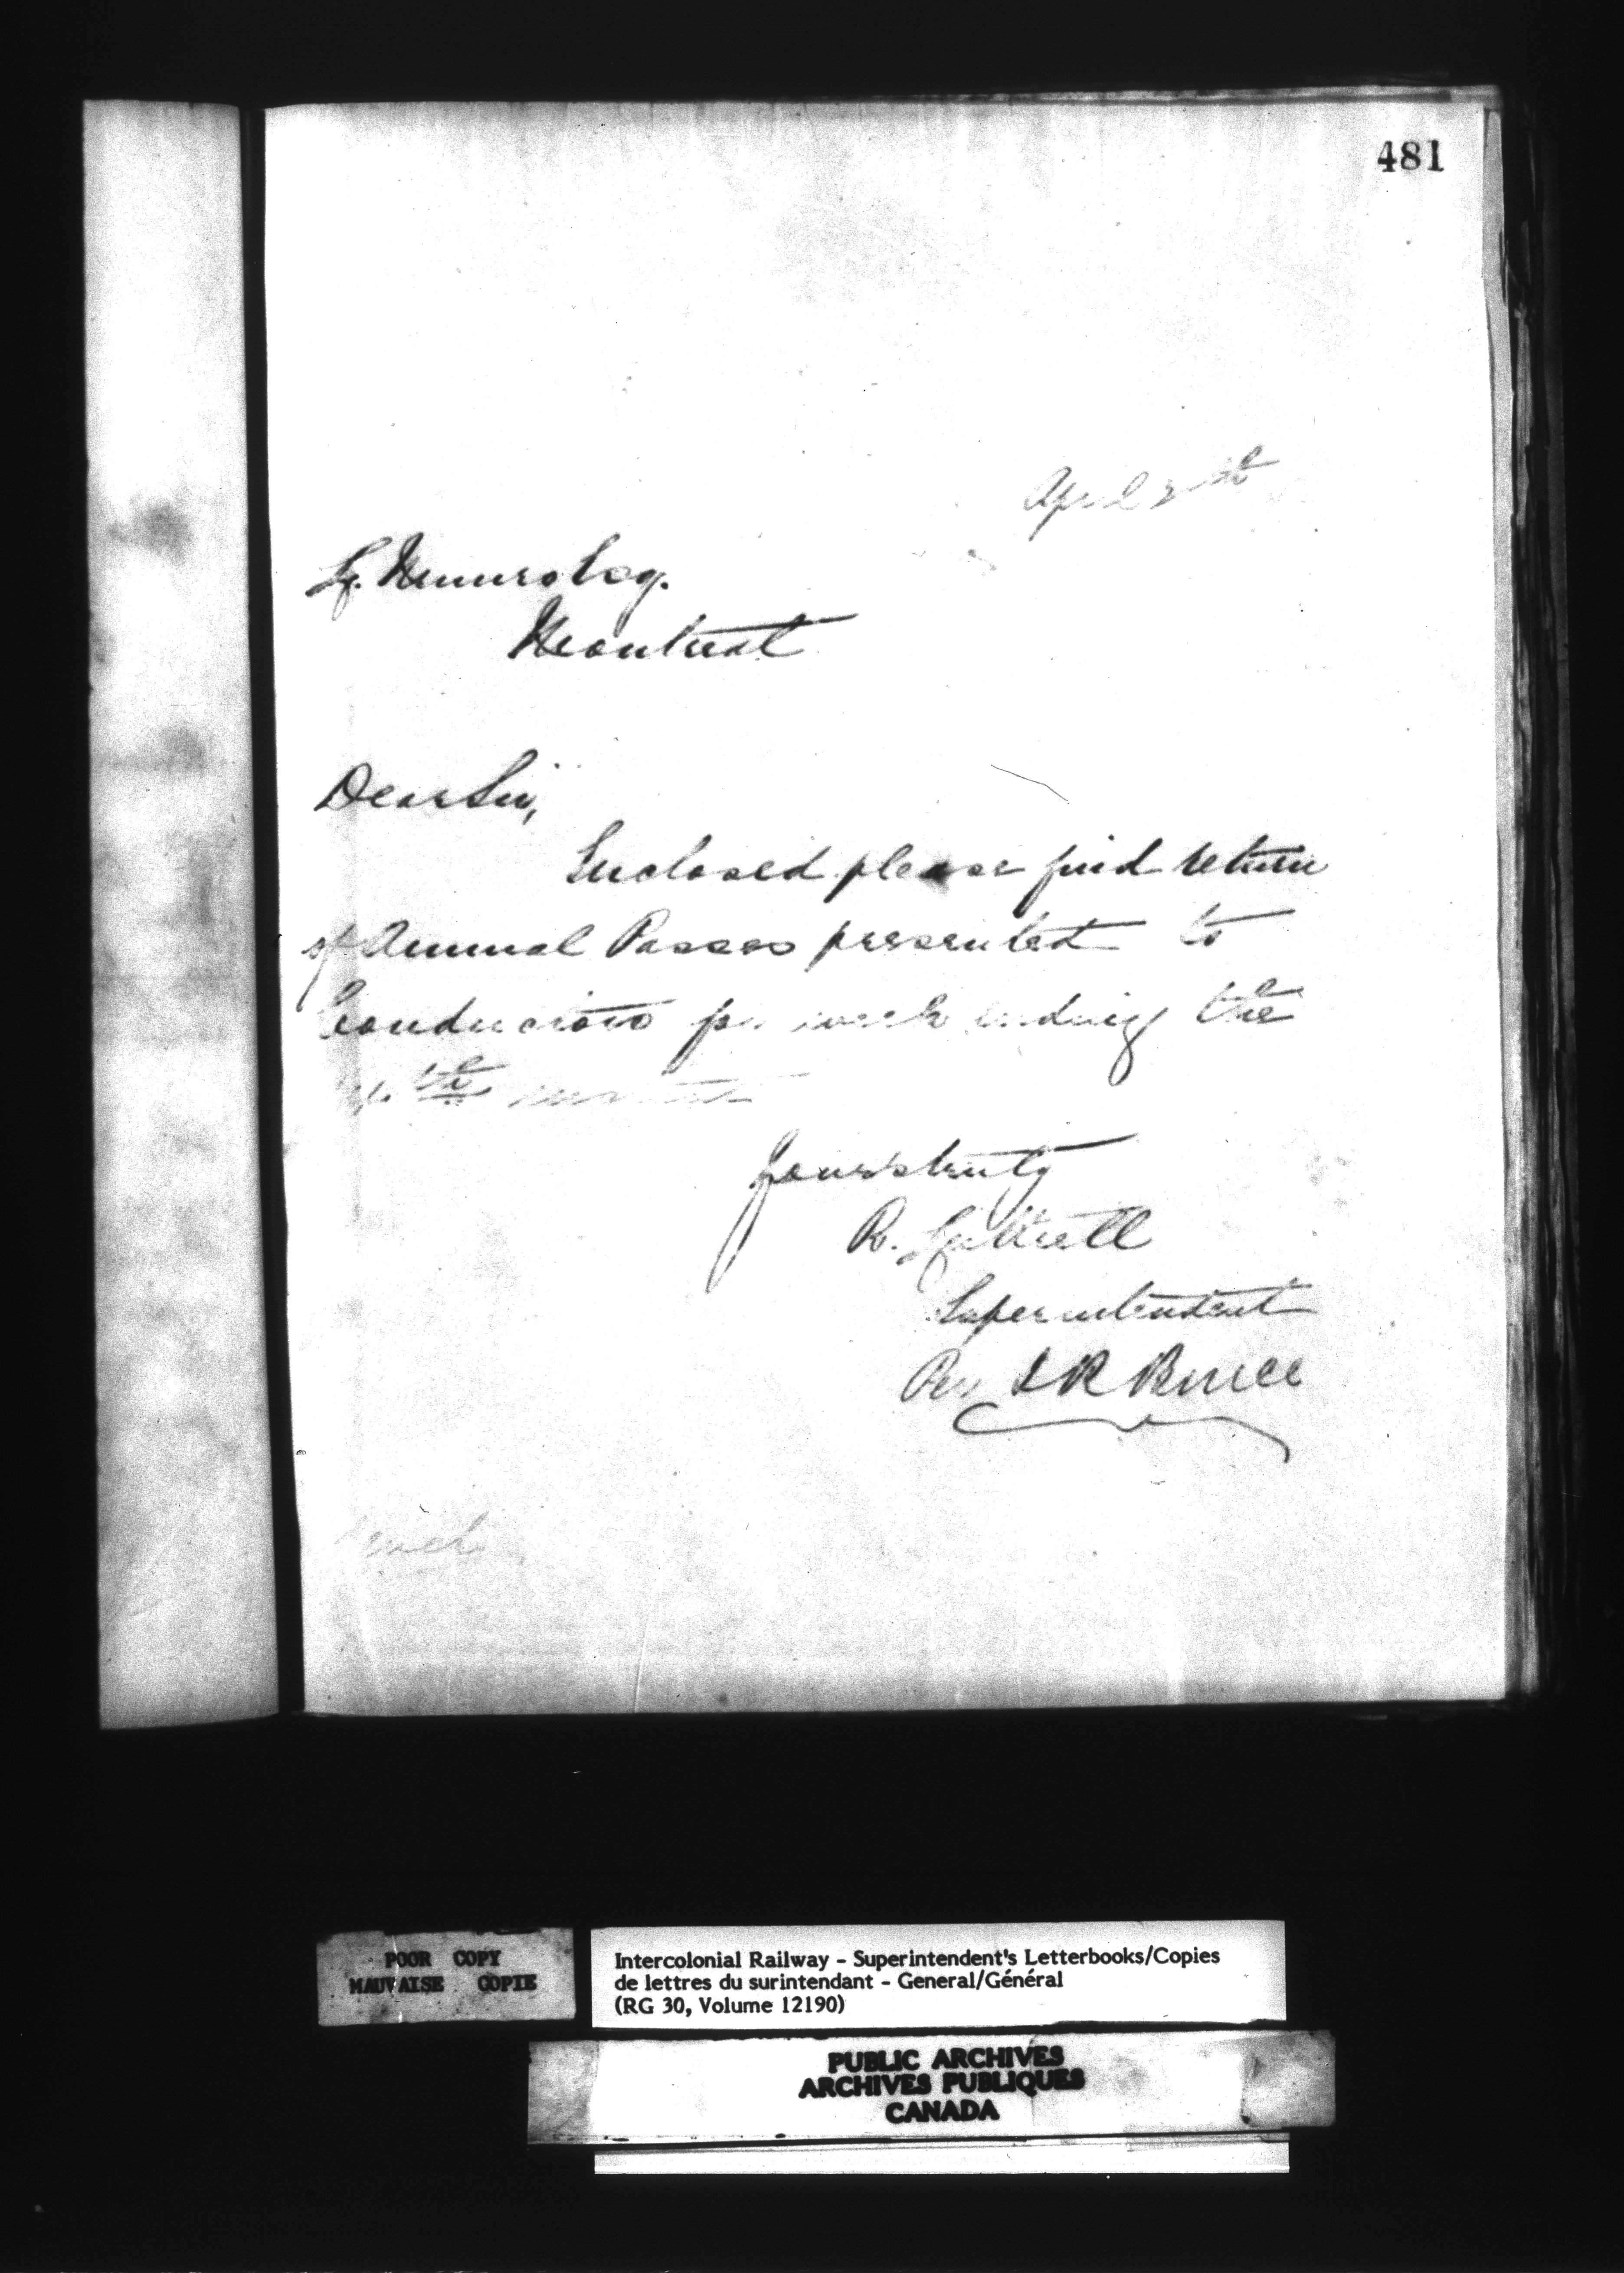 481
April
Montreal
Dear Sir,
Enclosed please find return
of Annual Passes presented to
Conductors for week ending the
th
Yours truly
R. Luttrell
Superintendent
Per J R Bruce
POOR COPY
MAUVAISE COPIE
Intercolonial Railway - Superintendent's Letterbooks/Copies
de lettres du surintendant - General/Général
(RG 30, Volume 12190)
PUBLIC ARCHIVES
ARCHIVES PUBLIQUES
CANADA